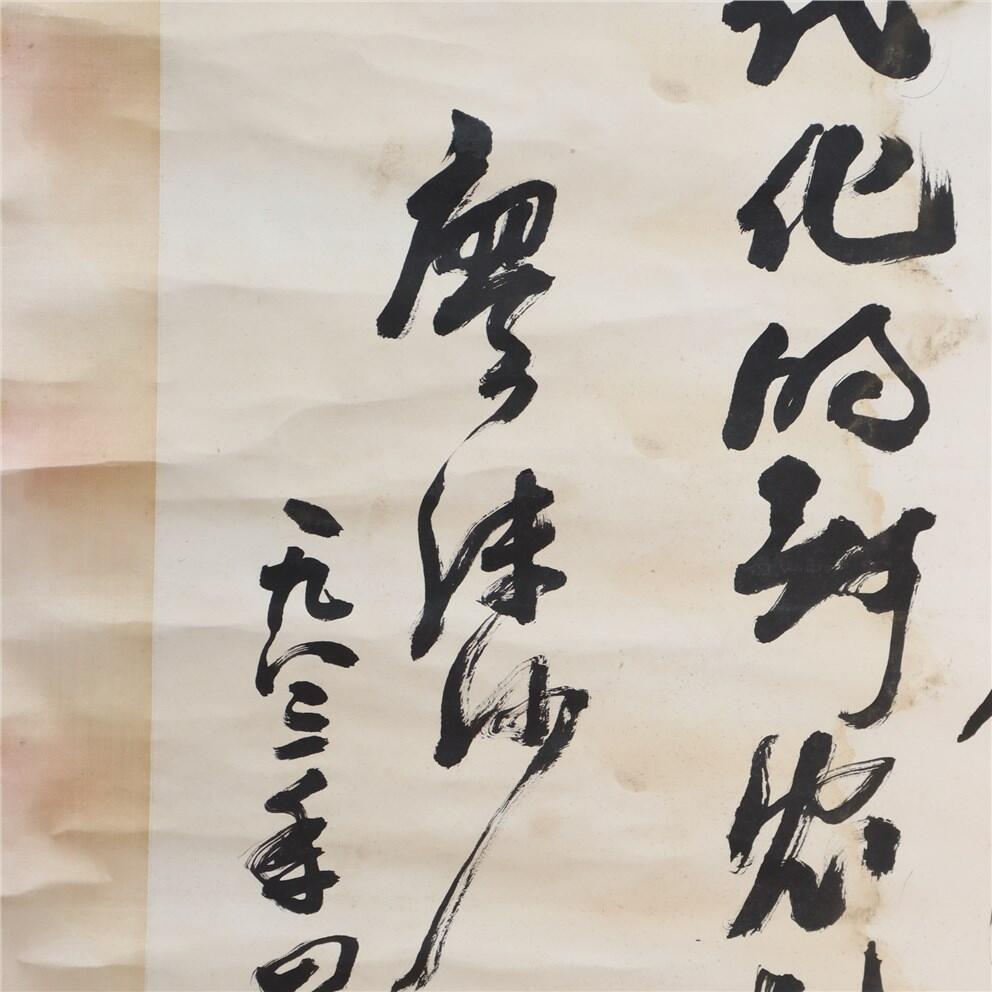 代化的新农
廖沫沙
一九八二年四